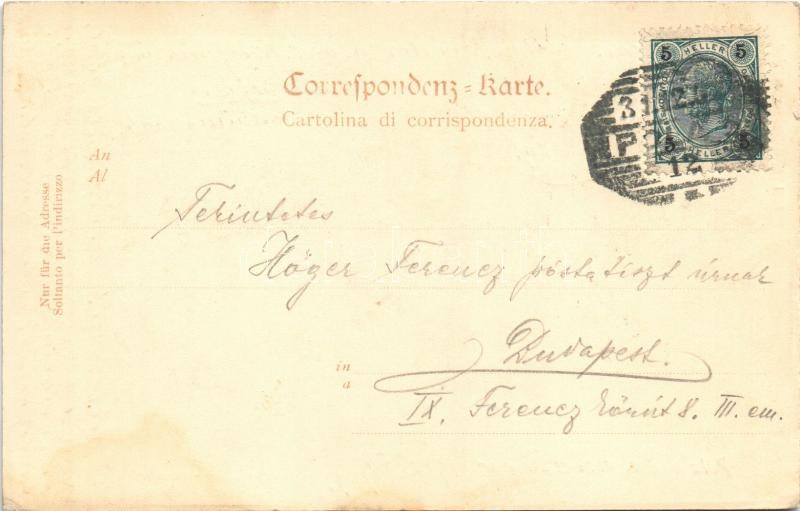 Correspondenz-Karte.
Cartolina di corrispondenza.
5 HELLER 5
5 5
12
An
Al
Nur für die Adresse
Soltanto per l'indirizzo
Tekintetes
Höger Ferencz póstatiszt úrnak
in
a
Budapest.
IX. Ferencz körút 8. III. em.